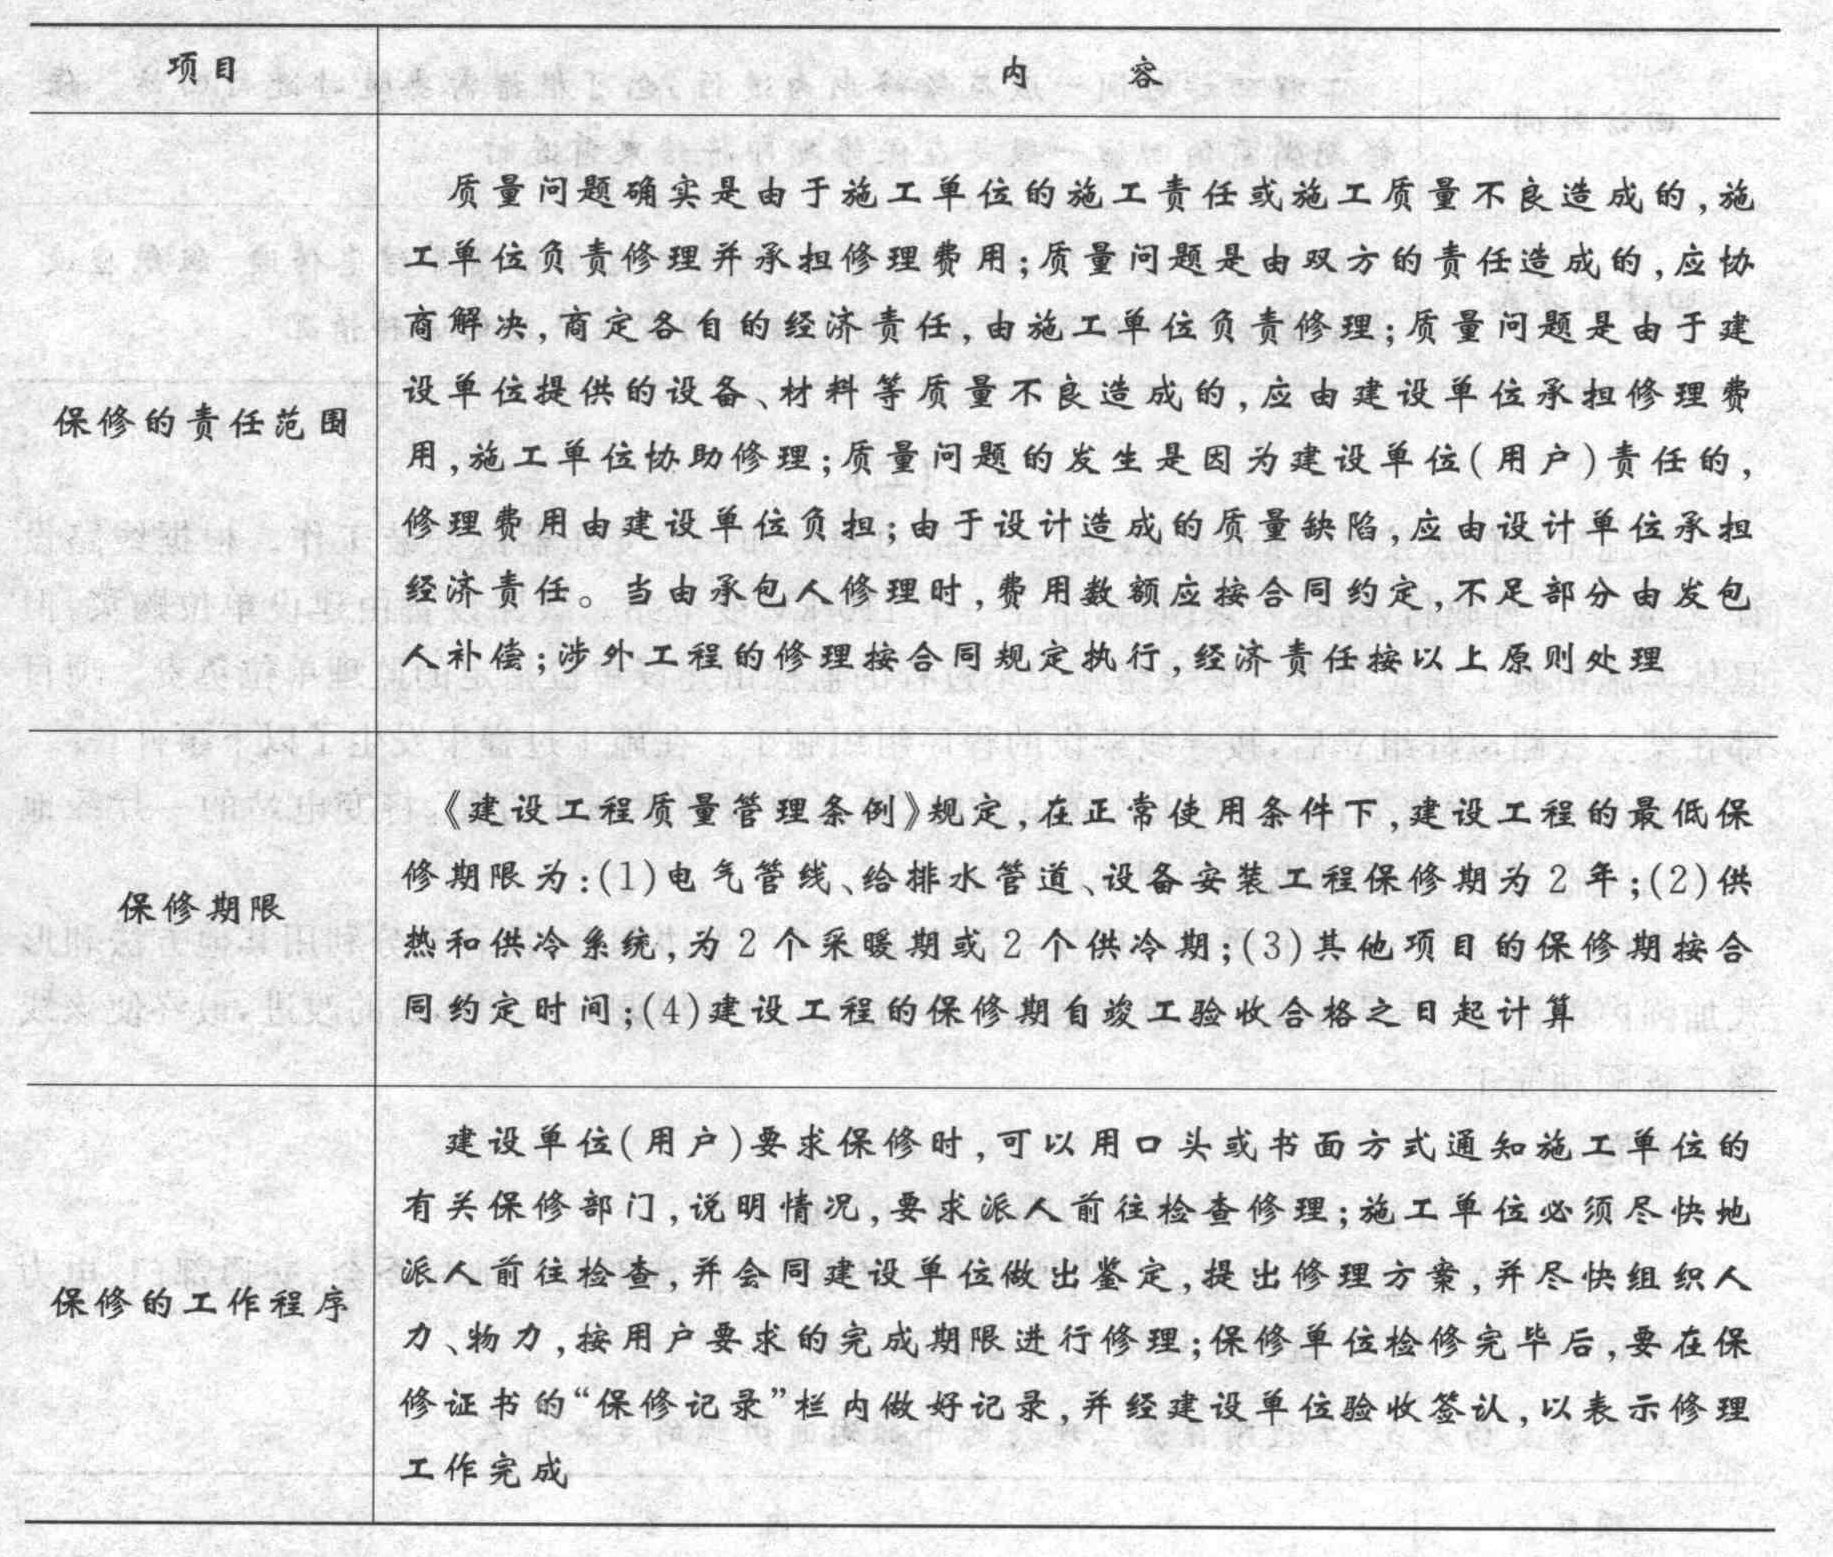 项目
内 容
保修的责任范围
质量问题确实是由于施工单位的施工责任或施工质量不良造成的,施
工单位负责修理并承担修理费用;质量问题是由双方的责任造成的,应协
商解决,商定各自的经济责任,由施工单位负责修理;质量问题是由于建
设单位提供的设备、材料等质量不良造成的,应由建设单位承担修理费
用,施工单位协助修理;质量问题的发生是因为建设单位(用户)责任的,
修理费用由建设单位负担;由于设计造成的质量缺陷,应由设计单位承担
经济责任。当由承包人修理时,费用数额应按合同约定,不足部分由发包
人补偿;涉外工程的修理按合同规定执行,经济责任按以上原则处理
保修期限
《建设工程质量管理条例》规定,在正常使用条件下,建设工程的最低保
修期限为:(1)电气管线、给排水管道、设备安装工程保修期为2年;(2)供
热和供冷系统,为2个采暖期或2个供冷期;(3)其他项目的保修期按合
同约定时间;(4)建设工程的保修期自竣工验收合格之日起计算
保修的工作程序
建设单位(用户)要求保修时,可以用口头或书面方式通知施工单位的
有关保修部门,说明情况,要求派人前往检查修理;施工单位必须尽快地
派人前往检查,并会同建设单位做出鉴定,提出修理方案,并尽快组织人
力、物力,按用户要求的完成期限进行修理;保修单位检修完毕后,要在保
修证书的“保修记录”栏内做好记录,并经建设单位验收签认,以表示修理
工作完成